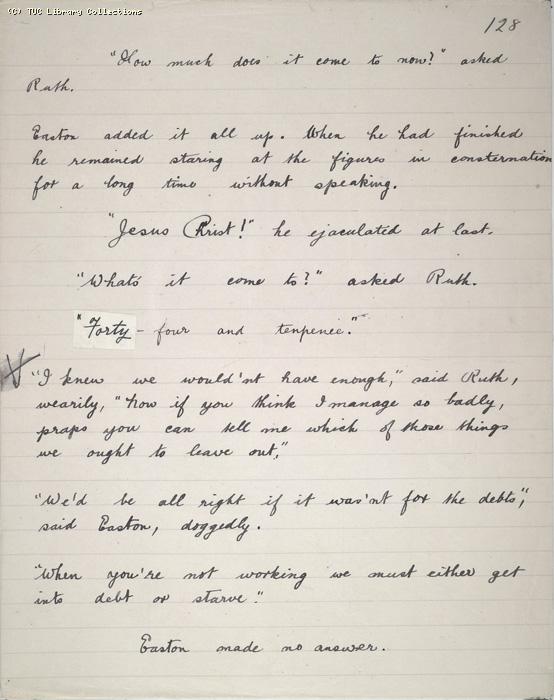 (C) TUC Library Collections
128
"How much does it come to now?" asked
Ruth.
Easton added it all up. When he had finished
he remained staring at the figures in consternation
for a long time without speaking.
"Jesus Christ!" he ejaculated at last.
"What's it come to?" asked Ruth.
"Forty-four and tenpence."
"I knew we would'nt have enough," said Ruth,
wearily, "now if you think I manage so badly,
praps you can tell me which of those things
we ought to leave out."
"We'd be all right if it was'nt for the debts",
said Easton, doggedly.
"When you're not working we must either get
into debt or starve".
Easton made no answer.